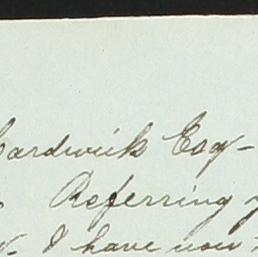 Cardwick Esq-
Referring
I have now